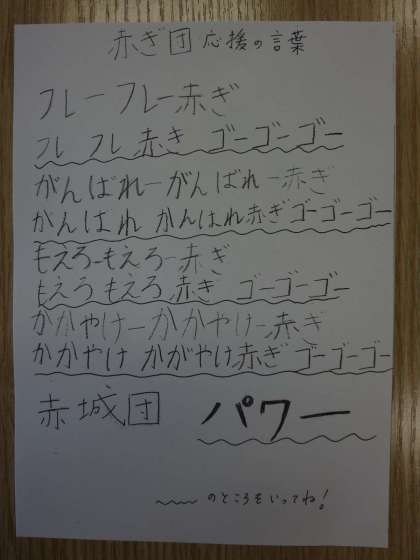 赤ぎ団 応援の言葉
フレーフレー赤ぎ
フレ フレ 赤き ゴーゴーゴー
がんばれーがんばれー赤ぎ
がんばれ かんはれ赤ぎゴーゴーゴー
もえろーもえろー赤ぎ
もえろ もえろ 赤ぎ ゴーゴーゴー
かがやけーかがやけー赤ぎ
かかやけ かがやけ赤ぎゴーゴーゴー
赤城団 パワー
のところをいってね!